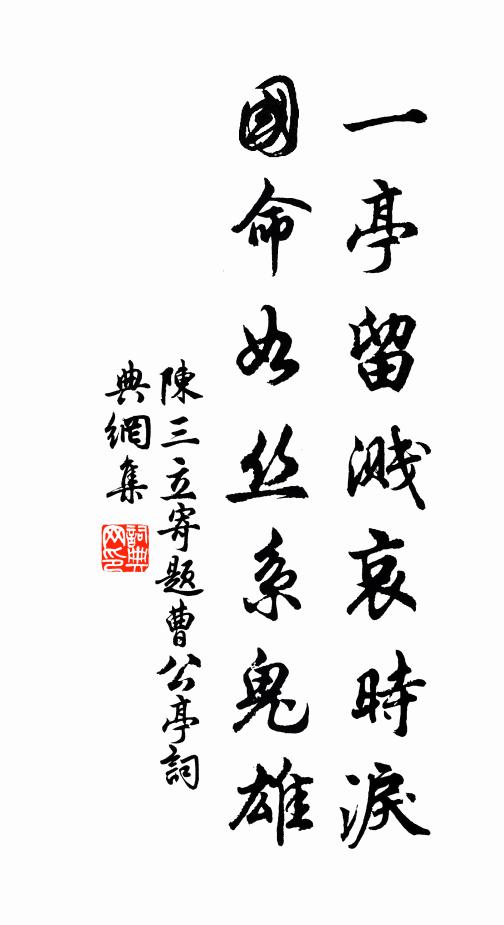 一亭留溅哀時淚
國命如丝系鬼雄
陳三立寄题曹公亭詞
典網集
詞典网印